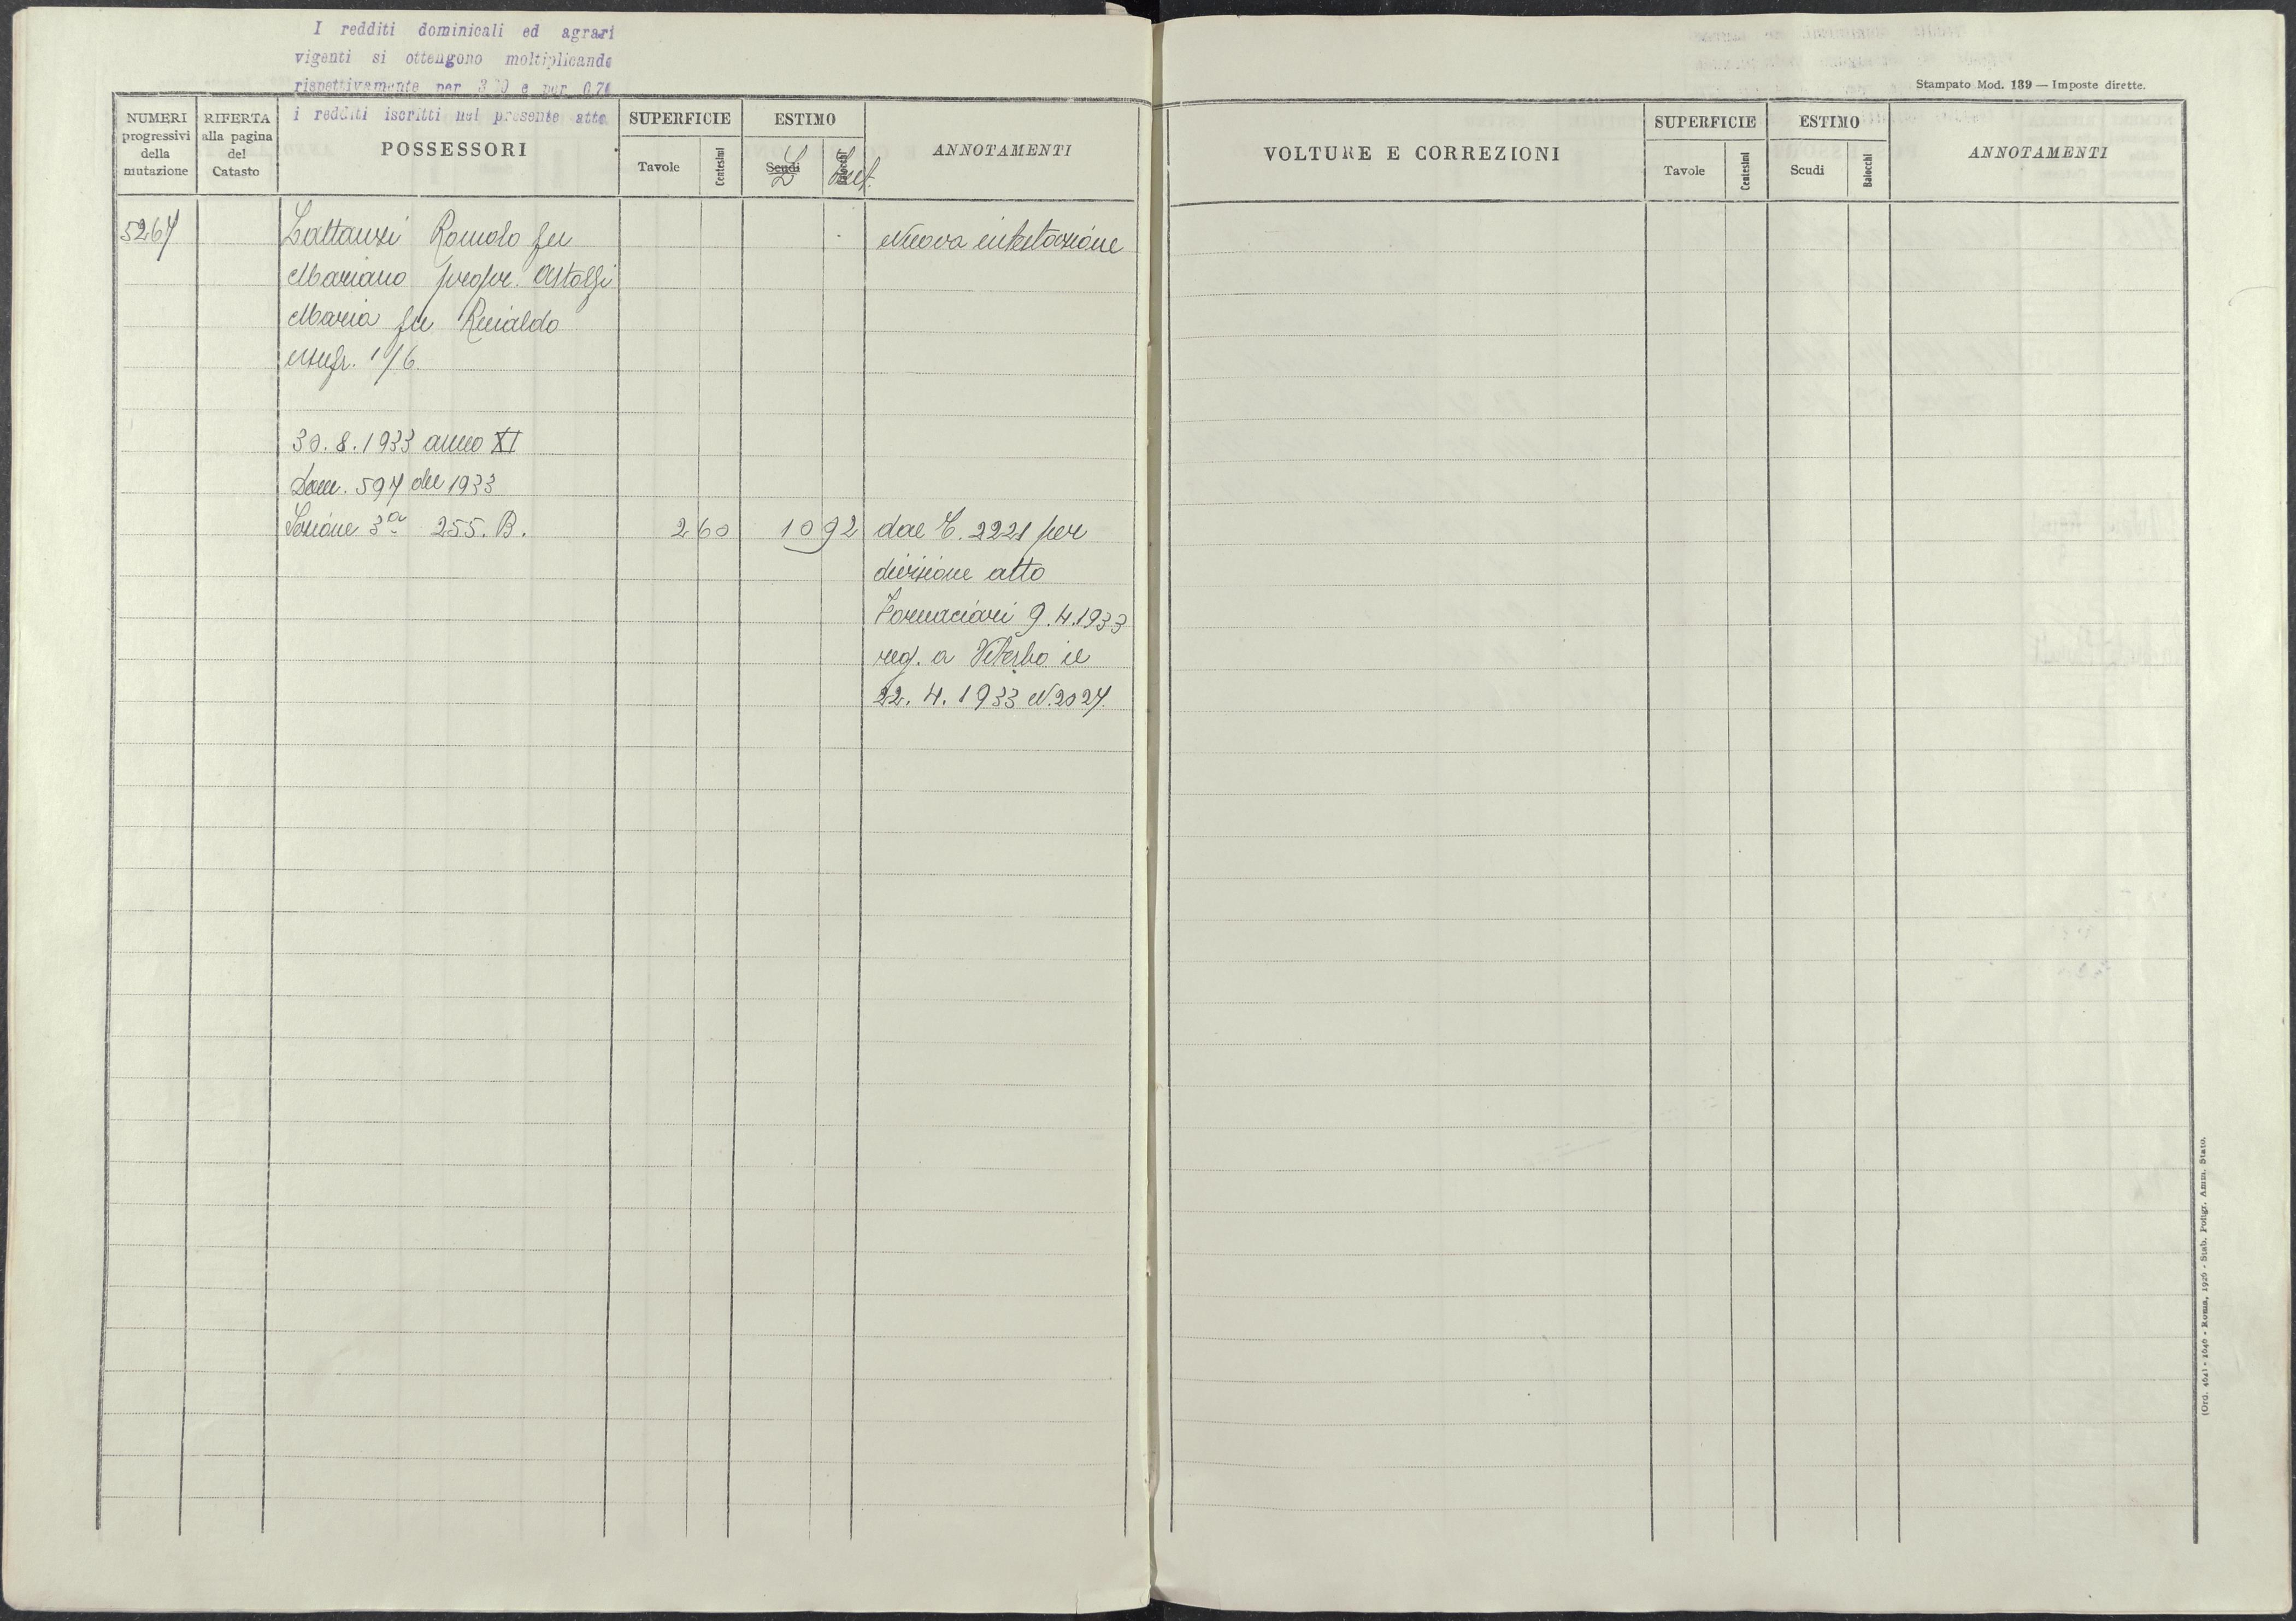 I redditi dominicali ed agrari
vigenti si ottengono moltiplicando
rispettivamente per 3 00 e per 0.70
i redditi iscritti nel presente atto
Stampato Mod. 139 — Imposte dirette.
NUMERI progressivi della mutazione
RIFERTA alla pagina del Catasto
POSSESSORI
SUPERFICIE
Tavole
Centesimi
ESTIMO
Scudi
L
Baiocchi
Cent.
ANNOTAMENTI
VOLTURE E CORREZIONI
SUPERFICIE
Tavole
Centesimi
ESTIMO
Scudi
Baiocchi
ANNOTAMENTI
5267 Lattanzi Romolo fu Nuova intestazione
Mariano propr. Astolfi
Maria fu Rinaldo
usufr. 1/6.
30.8.1933 anno XI
Dom. 597 del 1933
Sezione 3a 255.B. 2 60 10 92 dal C. 2221 per
divisione atto
Fornaciari 9.4.1933
reg. a Viterbo il
22.4.1933 N.2027.
(Ord. 4641 - 1646 - Roma, 1926 - Stab. Poligr. Amm. Stato.